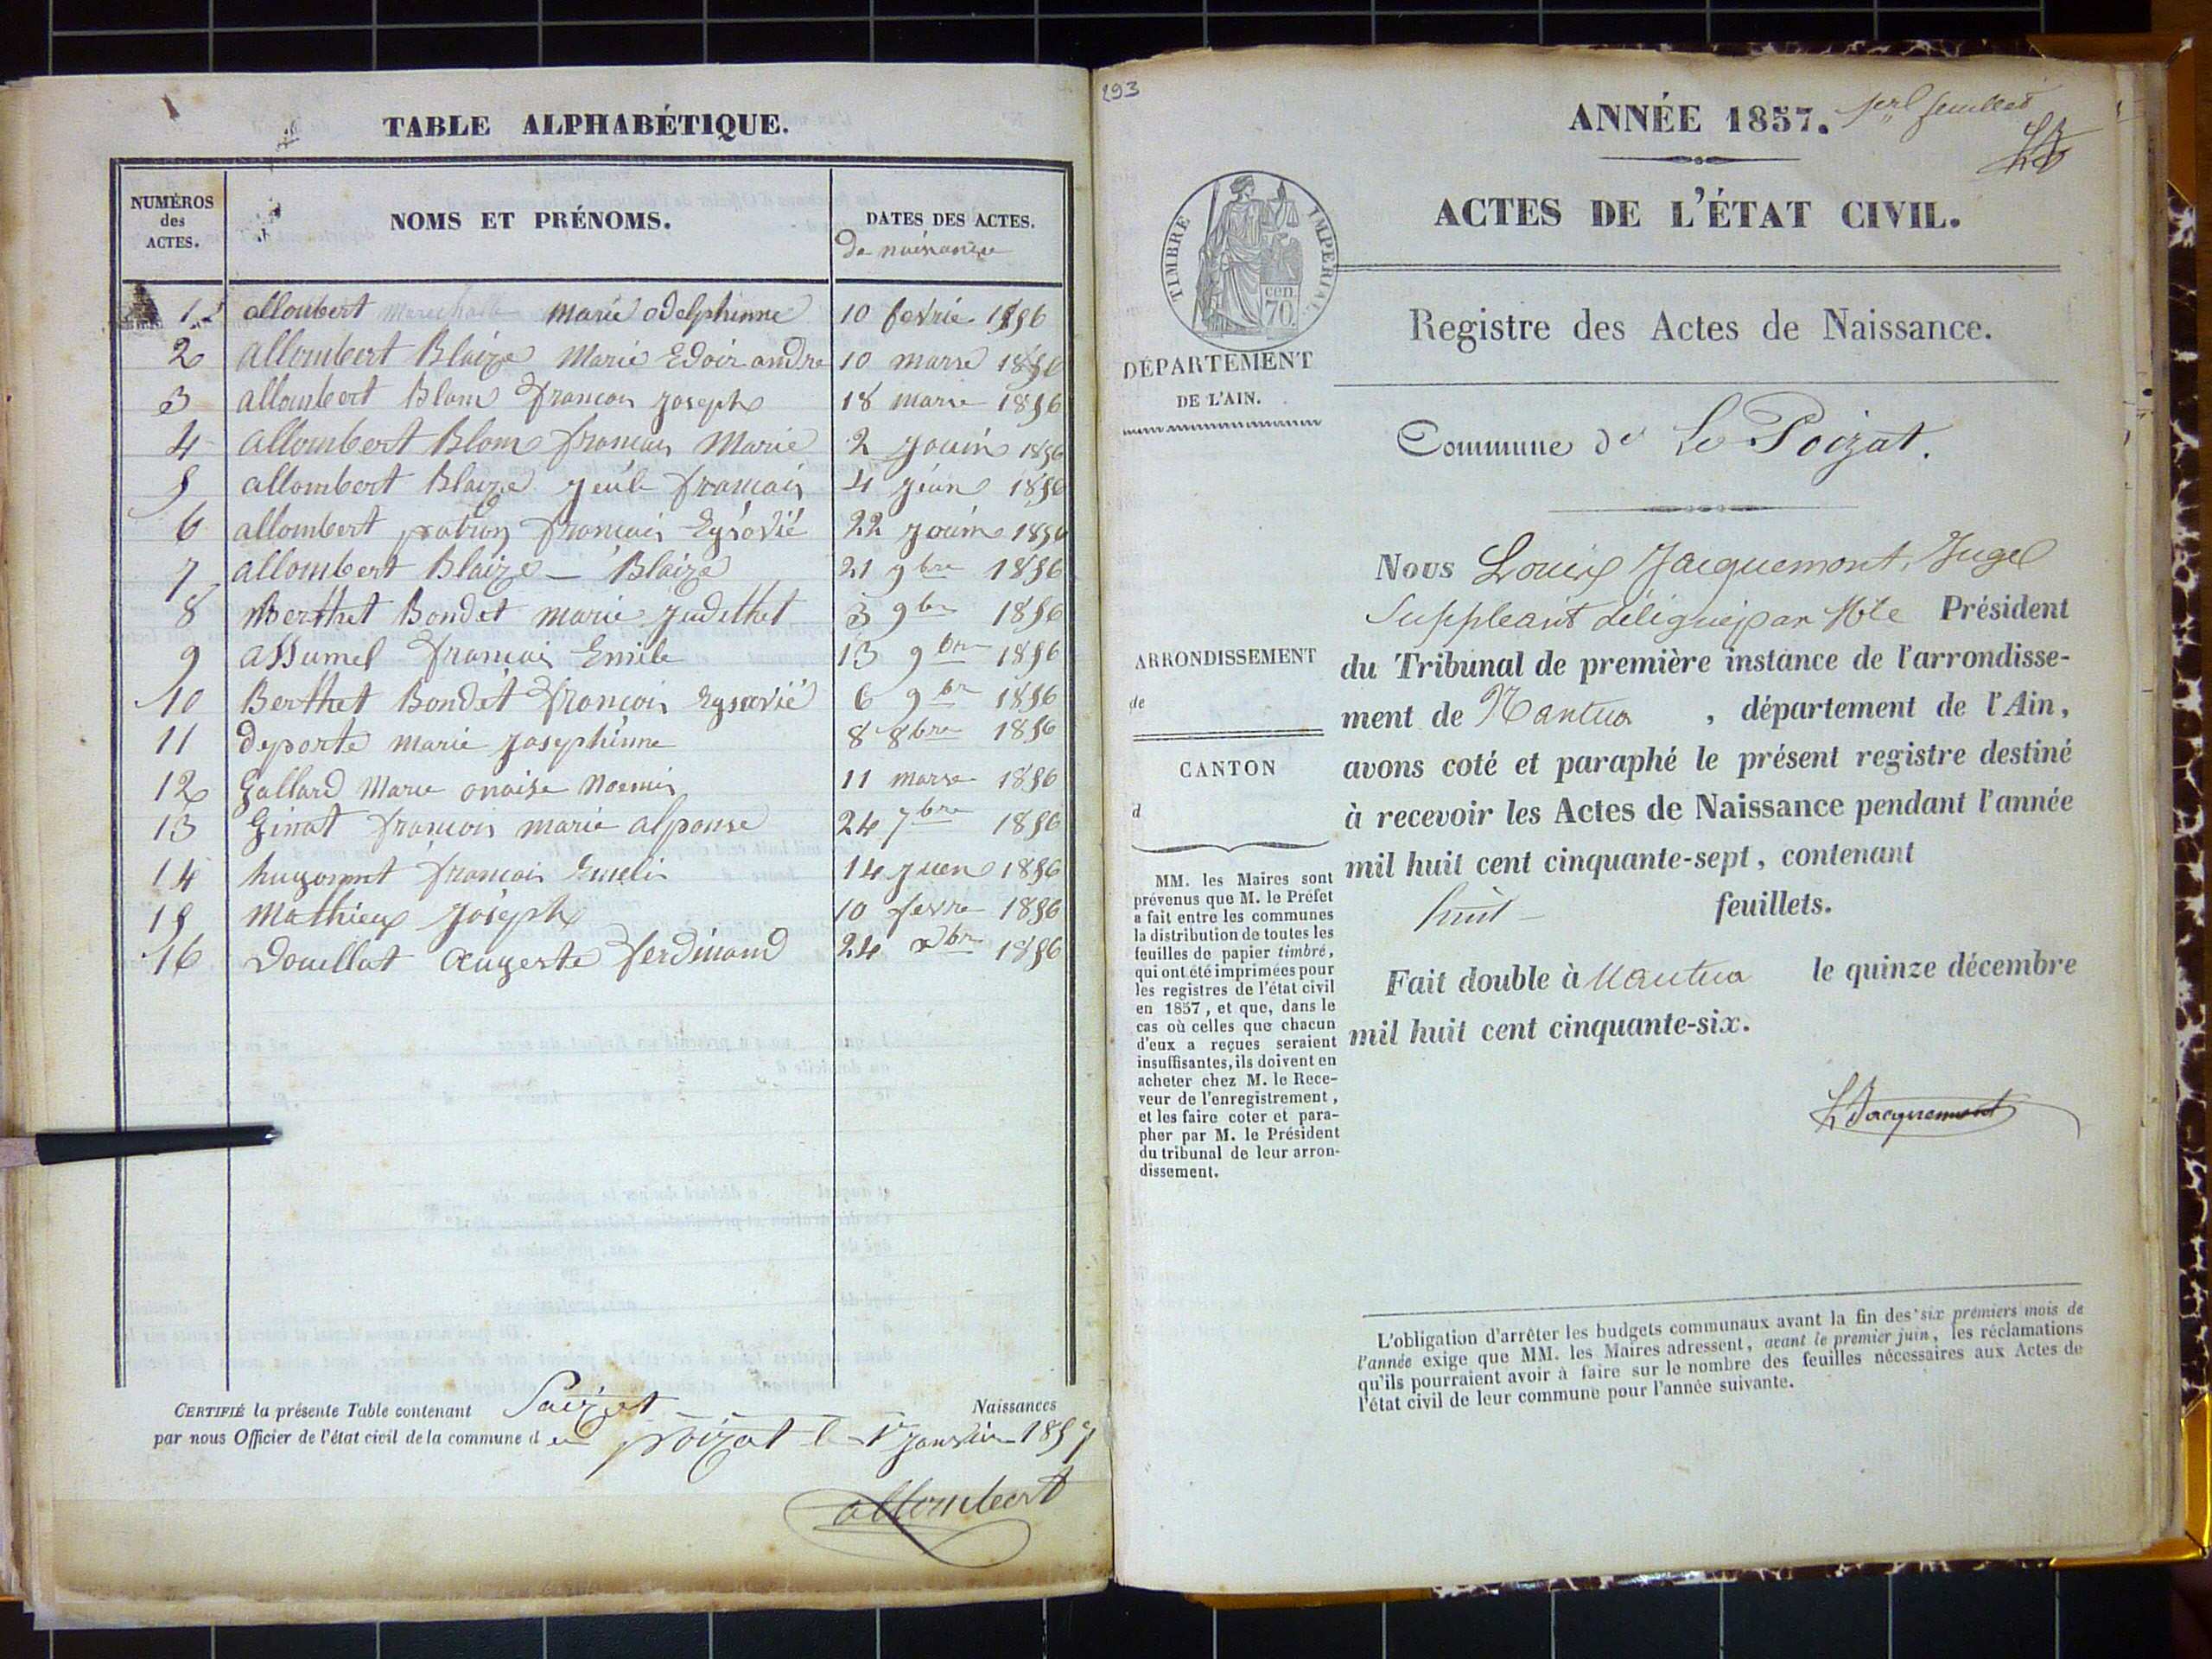 TABLE ALPHABÉTIQUE.
NUMÉROS
des
ACTES.
NOMS ET PRÉNOMS.
DATES DES ACTES.
de naisance
1 alloubert marie adelphinne 10 fevrie 1856
2 allombert Blaize Marie Edoir andre 10 marse 1856
3 allombert Blam francois joseph 18 marse 1856
4 allombert Blam francais Marie 2 jouin 1856
5 allombert Blaize francois 4 1856
6 allombert patron francois 22 jouin 1856
7 allombert Blaize - Blaize 21 9bre 1856
8 Berthet Bondet marie judethet 3 9bre 1856
9 assumel francois Emile 13 9bre 1856
10 Berthet Bondet francois 6 9bre 1856
11 deporte marie josephinne 8 8bre 1856
12 gallard Marie onaise Noemis 11 marse 1856
13 ginat francois marie alponse 24 7bre 1856
14 hugonnet francois 14 juen 1856
15 Mathieux joseph 10 fevre 1856
16 douillat augeste ferdinand 24 xbre 1856
CERTIFIÉ la présente Table contenant Saizet Naissances
par nous Officier de l'état civil de la commune d poizat le 1er janvier 1857
allombert
293
ANNÉE 1857. 1er feuillet
TIMBRE IMPÉRIAL
cen
70.
ACTES DE L'ÉTAT CIVIL.
Registre des Actes de Naissance.
DÉPARTEMENT
DE L'AIN.
Commune de Le Poizat.
Nous Louis Jacquemont, Juge
Suppleant délégué par Mr le Président
ARRONDISSEMENT
de
du Tribunal de première instance de l'arrondisse-
ment de Nantua , département de l'Ain,
avons coté et paraphé le présent registre destiné
CANTON
d
à recevoir les Actes de Naissance pendant l'année
mil huit cent cinquante-sept, contenant
huit feuillets.
Fait double à Nantua le quinze décembre
mil huit cent cinquante-six.
L Jacquemont
MM. les Maires sont
prévenus que M. le Préfet
a fait entre les communes
la distribution de toutes les
feuilles de papier timbré,
qui ont été imprimées pour
les registres de l'état civil
en 1857, et que, dans le
cas où celles que chacun
d'eux a reçues seraient
insuffisantes, ils doivent en
acheter chez M. le Rece-
veur de l'enregistrement,
et les faire coter et para-
pher par M. le Président
du tribunal de leur arron-
dissement.
L'obligation d'arrêter les budgets communaux avant la fin des six premiers mois de
l'année exige que MM. les Maires adressent, avant le premier juin, les réclamations
qu'ils pourraient avoir à faire sur le nombre des feuilles nécessaires aux Actes de
l'état civil de leur commune pour l'année suivante.